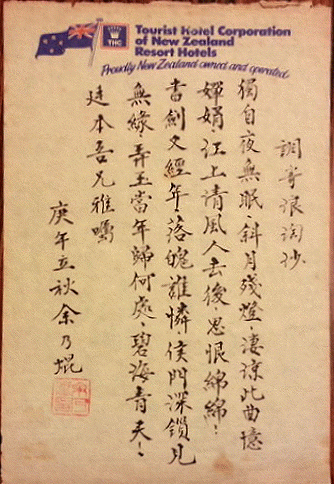 THC
Tourist Hotel Corporation
of New Zealand
Resort Hotels
Proudly New Zealand owned and operated
調寄浪淘沙
獨自夜無眠、斜月殘燈、淒涼此曲憶
嬋娟、江上清風人去後、思恨綿綿、
書劍又經年、落魄誰憐、侯門深鎖見
無緣、弄玉當年歸何處、碧海青天、
廷本吾兄雅囑
庚午立秋余乃焜